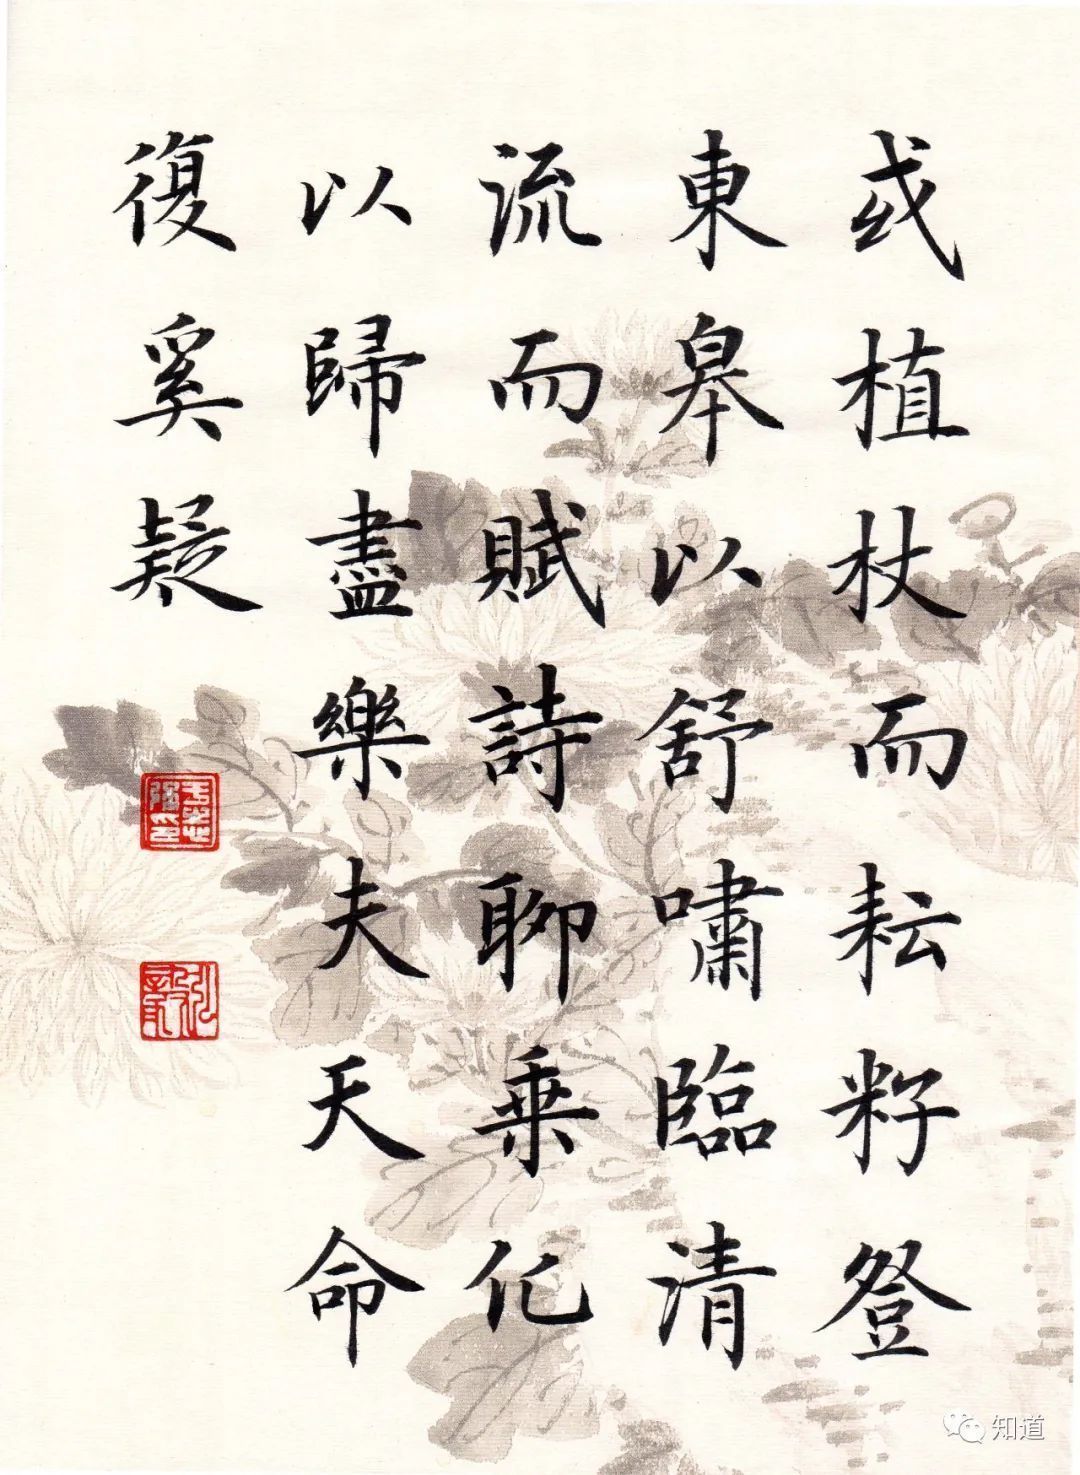 或植杖而耘耔登
東皋以舒嘯臨清
流而賦詩聊乗化
以歸盡樂夫天命
復奚疑
知道